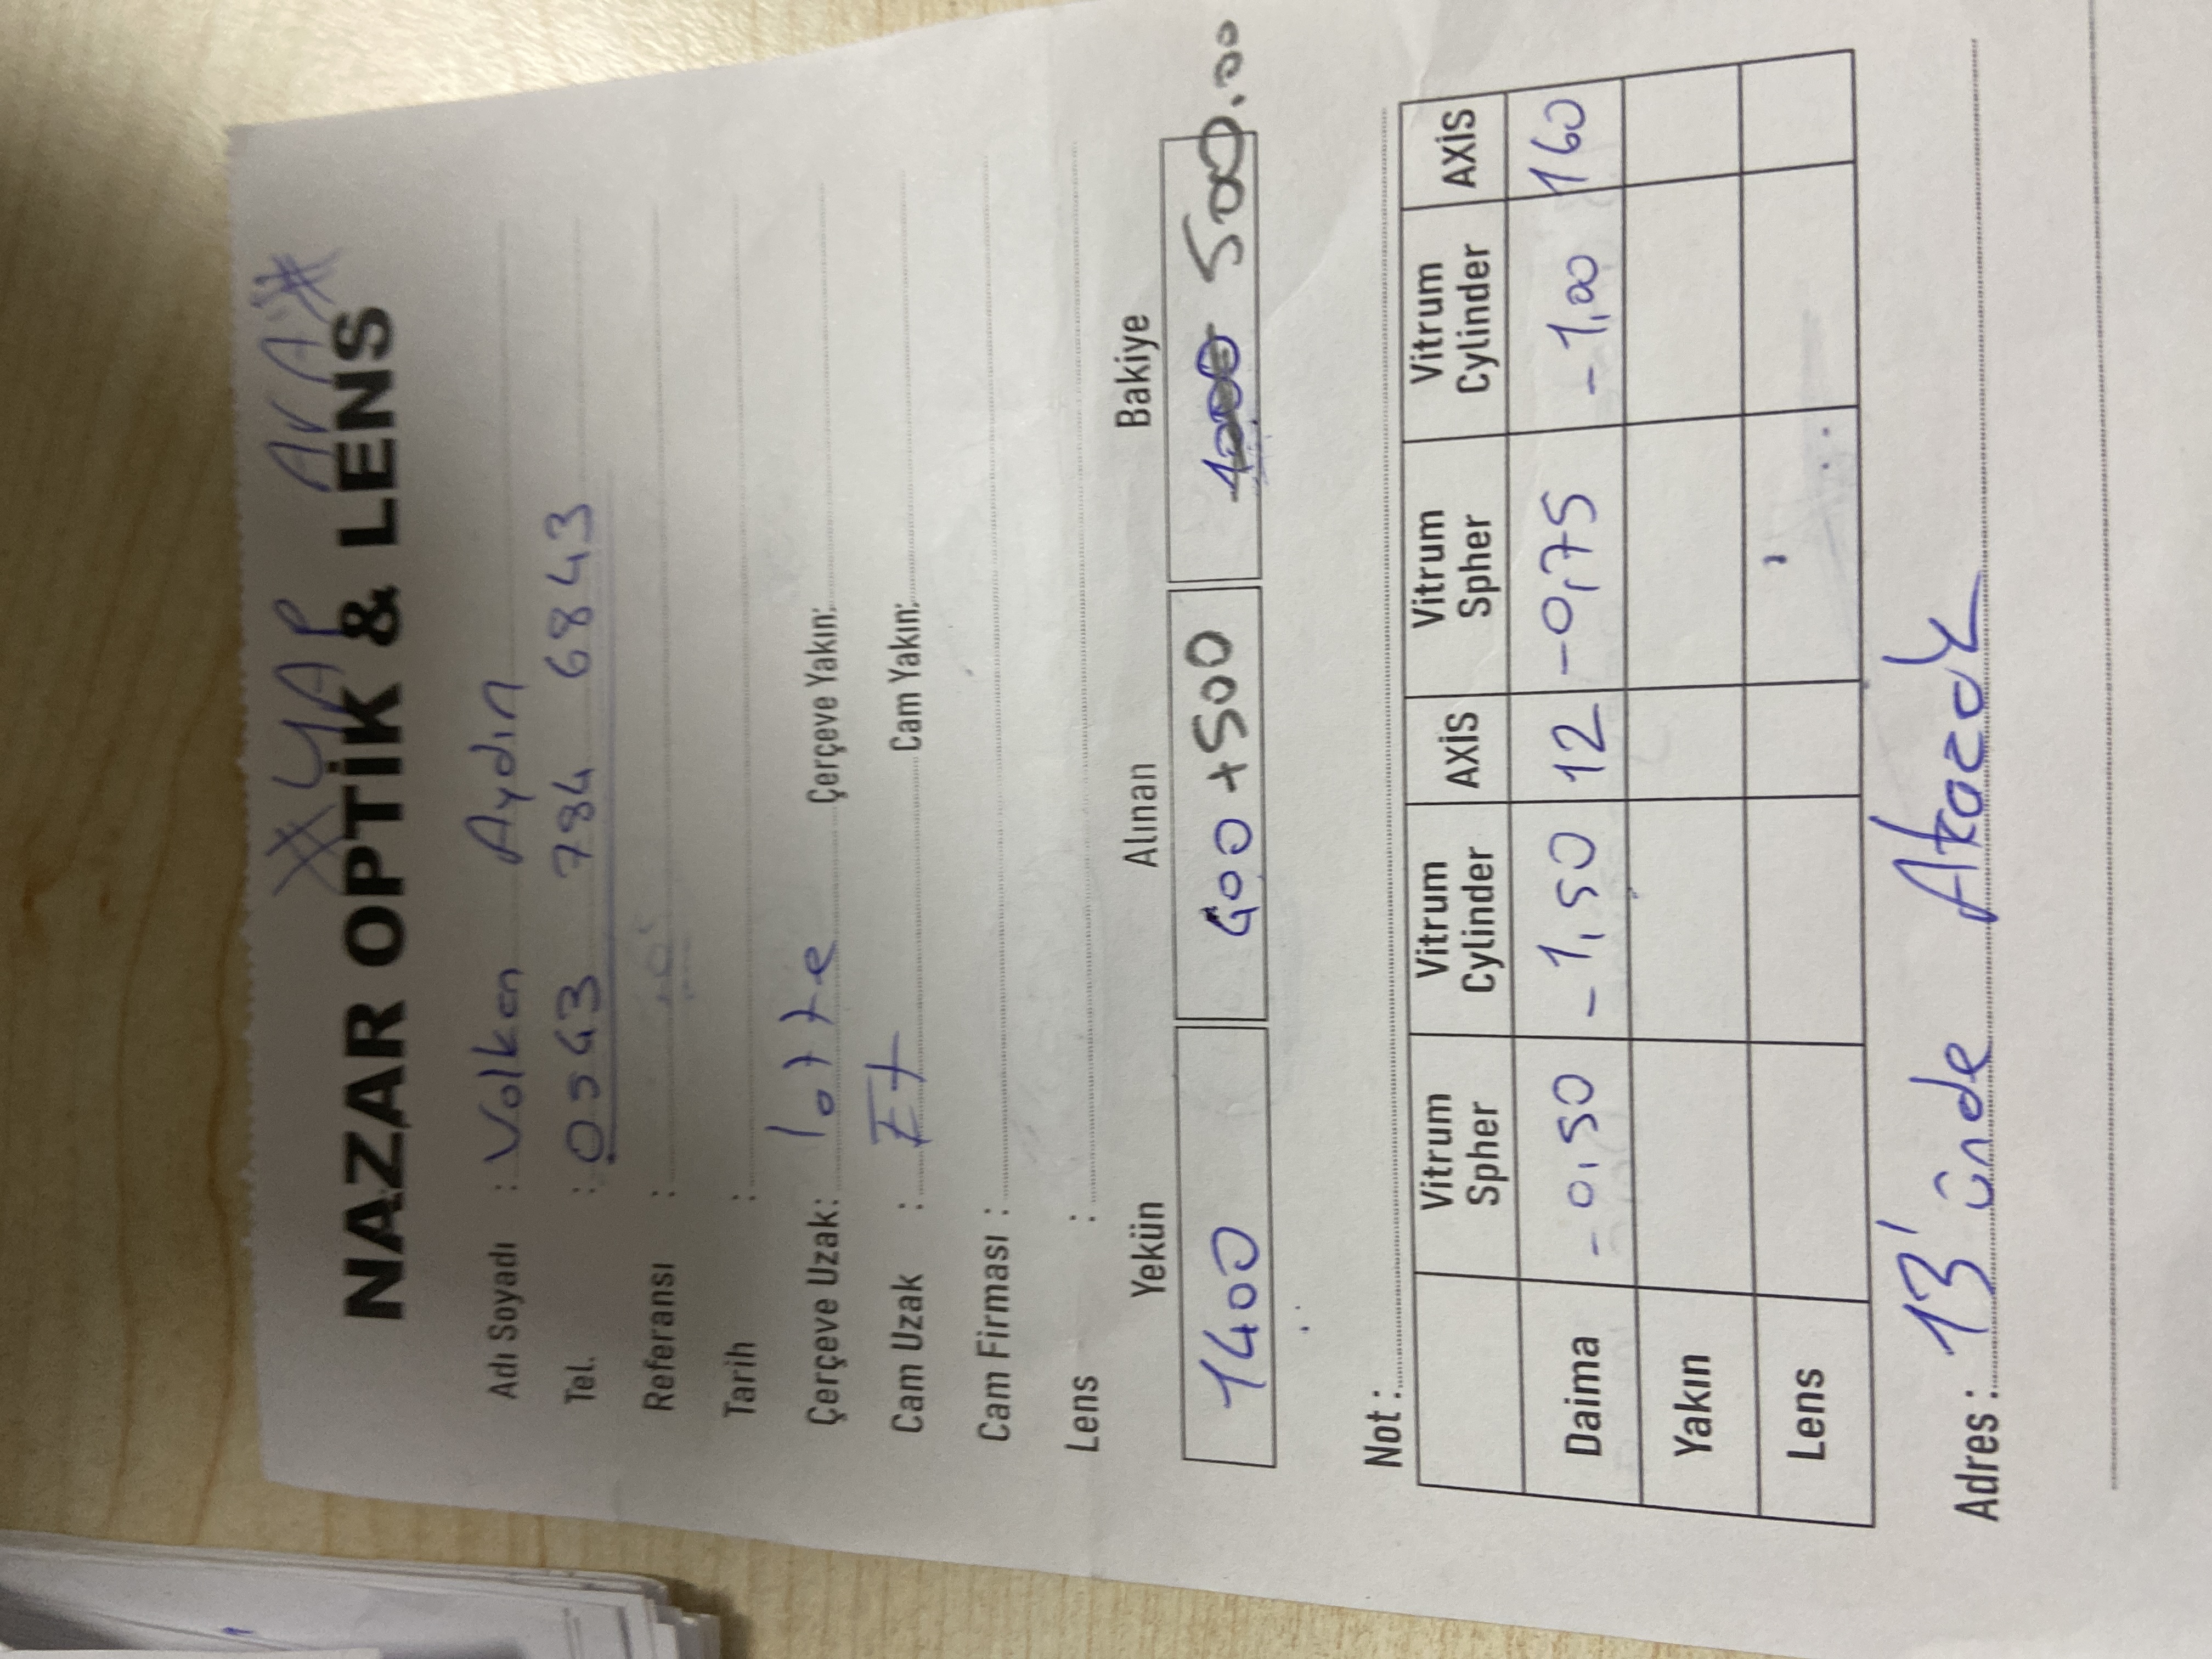 #YAP ARA#
NAZAR OPTİK & LENS
Adı Soyadı : Volkan Aydın
Tel. : 0543 784 6843
Referansı :
Tarih :
Çerçeve Uzak: lotte Çerçeve Yakın:
Cam Uzak : Ex Cam Yakın:
Cam Firması :
Lens :
Yekün Alınan Bakiye
1400 400 +500 1000 500.00
Not :
Vitrum Spher Vitrum Cylinder AXİS Vitrum Spher Vitrum Cylinder AXİS
Daima -0,50 -1,50 12 -0,75 -1,00 160
Yakın
Lens
Adres : 13'ünde Alacak